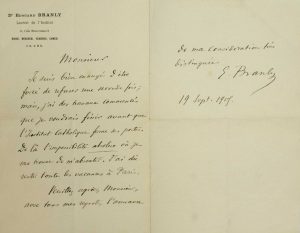 Dr EDOUARD BRANLY
Lauréat de l'Institut
Monsieur
Je suis bien ennuyé d'être
forcé de refuser une seconde fois,
mais, j'ai des travaux commencés
que je voudrais finir avant que
l'Institut Catholique ferme ses portes.
De là l'impossibilité absolue où je
me trouve de m'absenter. J'ai dû
rester toutes les vacances à Paris.
Veuillez agréer, Monsieur,
avec tous mes regrets, l'assurance
de ma considération très
distinguée
E. Branly
19 Sept.